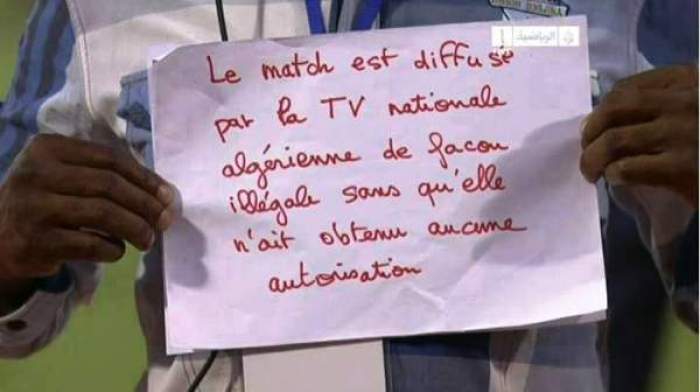 الرياضية 1
Le match est diffusé
par la TV nationale
algérienne de facon
illégale sans qu'elle
n'ait obtenu aucune
autorisation